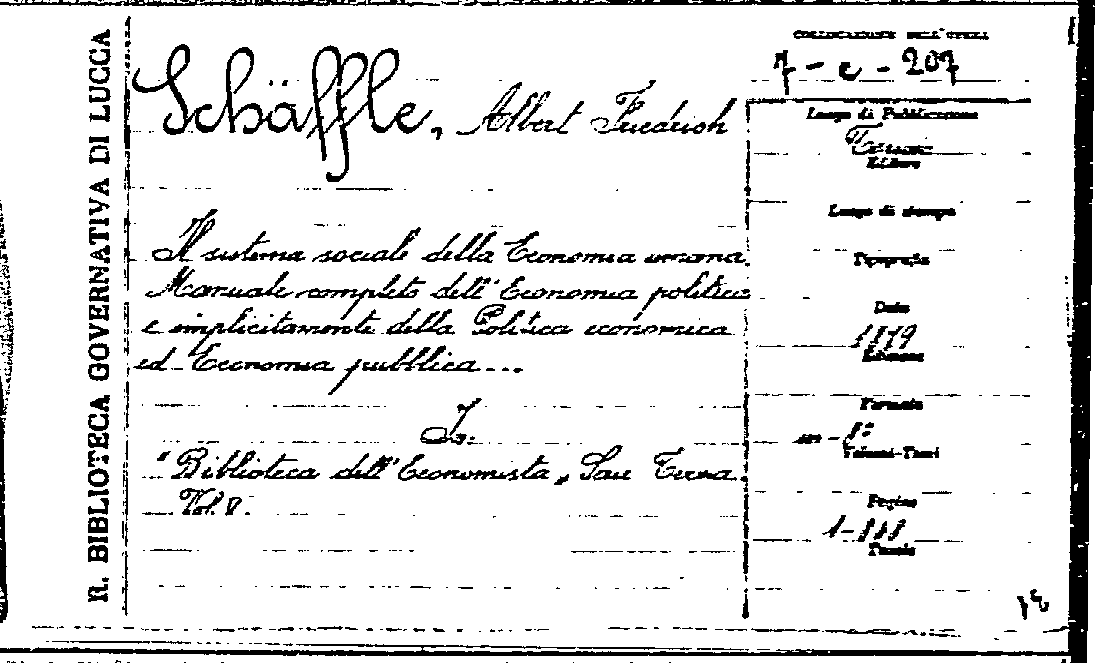 R. BIBLIOTECA GOVERNATIVA DI LUCCA
COLLOCAZIONE DELL'OPERA
7 - c - 207
Schäffle, Albert Friedrich
Il sistema sociale della Economia umana.
Manuale completo dell'Economia politica
e implicitamente della Politica economica
ed Economia pubblica...
In:
"Biblioteca dell'Economista" Serie Terza.
Vol. V.
Luogo di Pubblicazione
Torino
Editore
Luogo di stampa
Tipografia
Data
1879
Edizione
Formato
in-8°
Volumi-Tomi
Pagine
Tavole